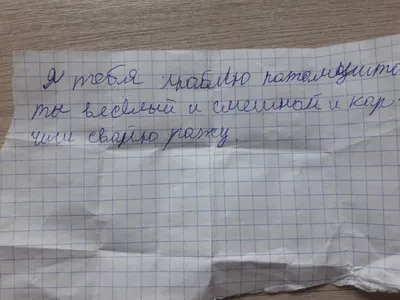 Я тебя люблю патамушто
ты весёлый и смешной и кар-
чиш свайю ражу